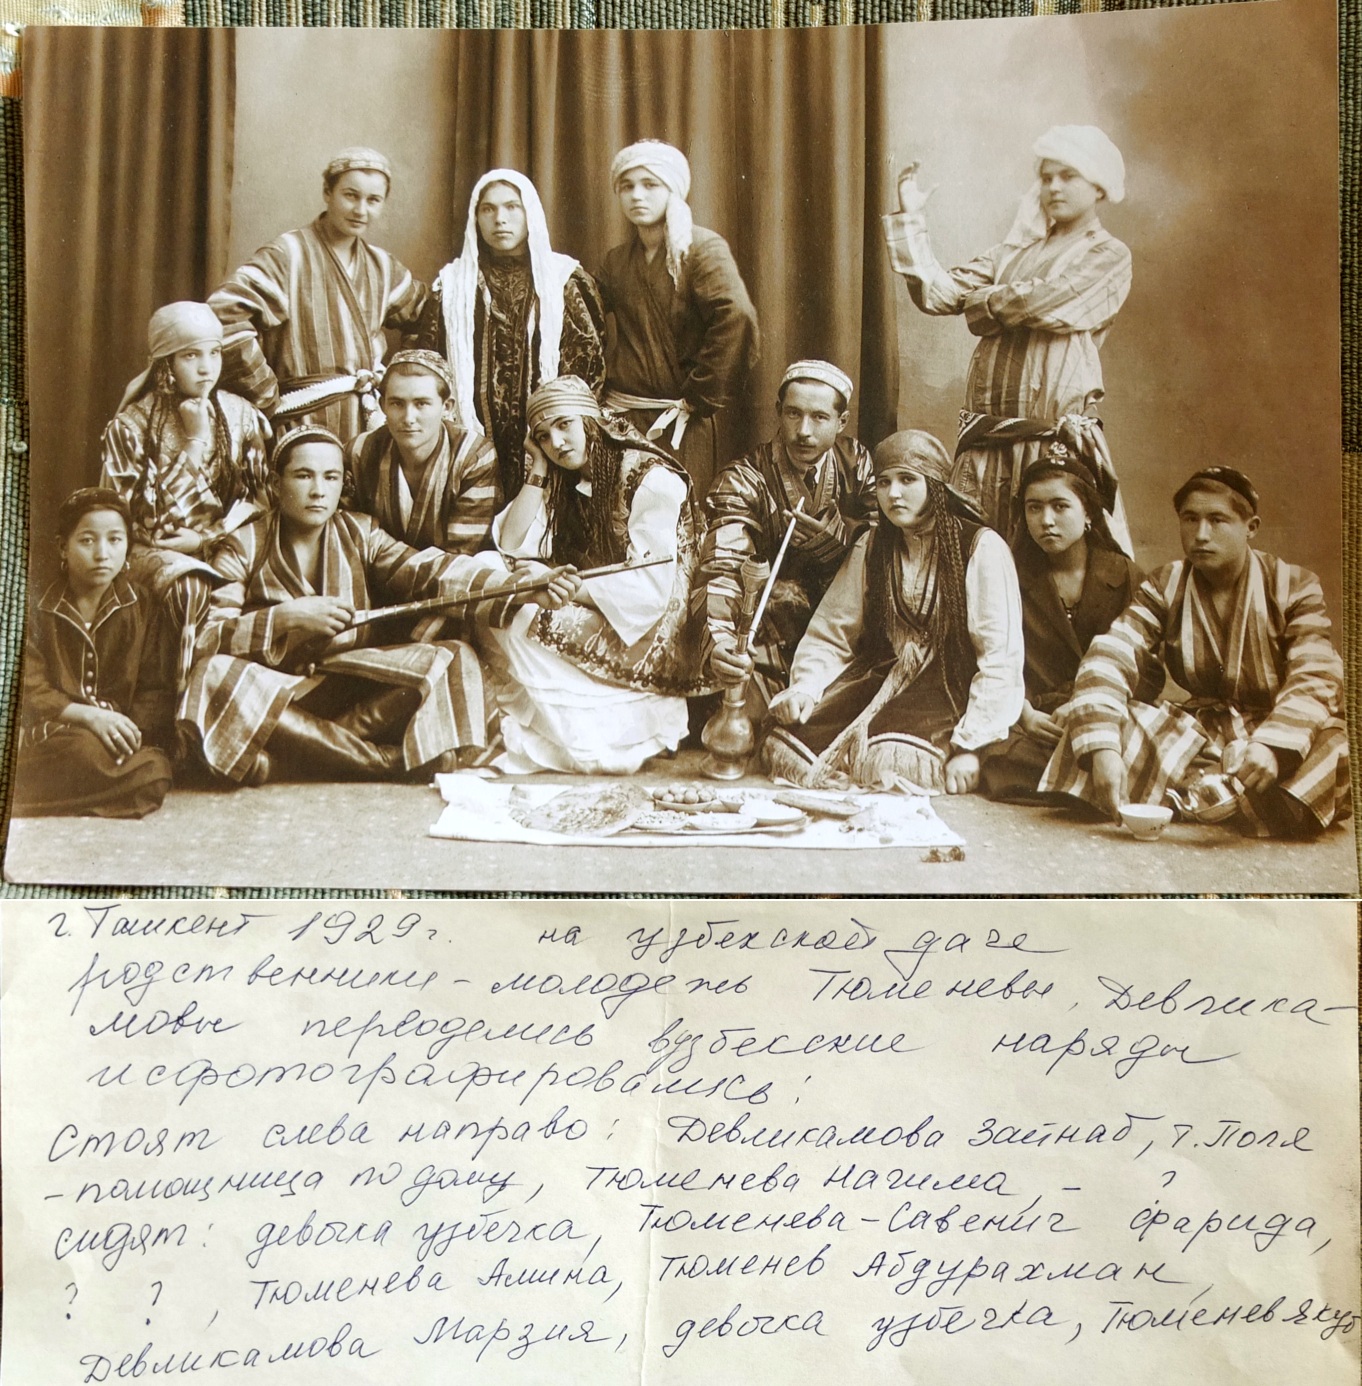 г. Ташкент 1929г. на узбекской даче
родственники - молодежь Тюменевы, Девлика-
мовы переоделись в узбекские наряды
и сфотографировались:
Стоят слева направо: Девликамова Зайнаб, т. Поля
- помощница по дому, Тюменева Нагима, - ?
сидят: девочка узбечка, Тюменева-Савенич Фарида,
? ?, Тюменева Амина, Тюменев Абдурахман,
Девликамова Марзия, девочка узбечка, Тюменев Якуб